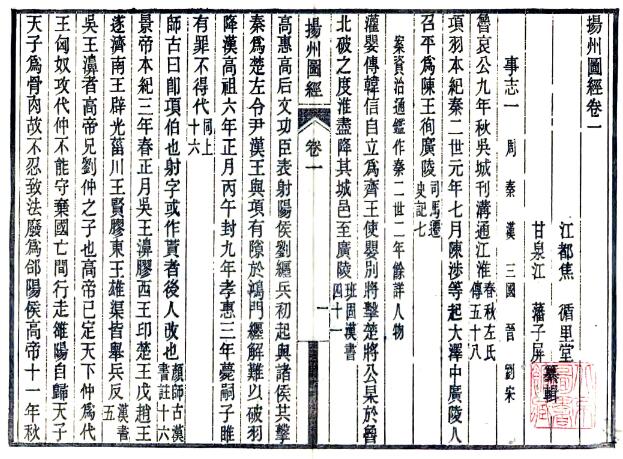 揚州圖經卷一
江都焦 循里堂
甘泉江 藩子屏
纂輯
事志一 周 秦 漢 三國 晉 劉宋
魯哀公九年秋吳城刊溝通江淮春秋左氏傳五十八
項羽本紀秦二世元年七月陳涉等起大澤中廣陵人
召平爲陳王徇廣陵司馬遷史記七
案資治通鑑作秦二世二年餘詳人物
灌嬰傳韓信自立爲齊王使嬰別將擊楚將公杲於魯
北破之度淮盡降其城邑至廣陵班固漢書四十一
揚州圖經 卷一 一
高惠高后文功臣表射陽侯劉纒兵初起與諸侯共擊
秦爲楚左令尹漢王與項有隙於鴻門纒解難以破羽
降漢高祖六年正月丙午封九年孝惠三年薨嗣子睢
有罪不得代同上十六
師古曰卽項伯也射字或作貰者後人改也顏師古漢書註十六
景帝本紀三年春正月吳王濞膠西王卬楚王戊趙王
遂濟南王辟光菑川王賢膠東王雄渠皆舉兵反漢書五
吳王濞者高帝兄劉仲之子也高帝已定天下仲爲代
王匈奴攻代仲不能守棄國亡間行走雒陽自歸天子
天子爲骨肉故不忍致法廢爲郃陽侯高帝十一年秋